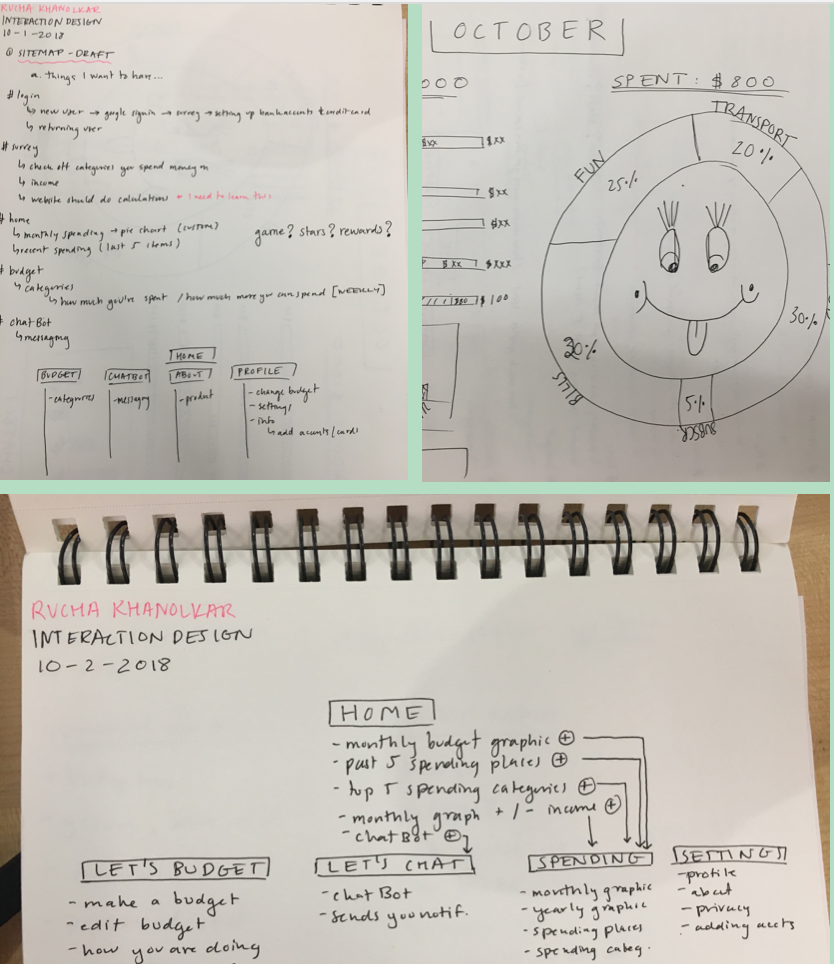 RUCHA KHANOLKAR
INTERACTION DESIGN
10-1-2018
@ SITEMAP - DRAFT
a. things I want to have...
# login
↳ new user → google signin → survey → setting up bank accounts & credit card
↳ returning user
# survey
↳ check off categories you spend money on
↳ income
↳ website should do calculations * I need to learn this
# home
↳ monthly spending → pie chart (custom)
↳ recent spending (last 5 items)
game? stars? rewards?
# budget
↳ categories
↳ how much you've spent / how much more you can spend [WEEKLY]
# chatBot
↳ messaging
HOME
BUDGET
- categories
CHATBOT
- messaging
ABOUT
- product
PROFILE
- change budget
- settings
- info
↳ add accounts/cards
OCTOBER
000
SPENT: $800
$xx $xx
$xx
$xx
$xx $xxx
$100
TRANSPORT
20%
FUN
25%
30%
20%
BILLS
5%
SUBSCR
RUCHA KHANOLKAR
INTERACTION DESIGN
10-2-2018
HOME
- monthly budget graphic +
- past 5 spending places +
- top 5 spending categories +
- monthly graph +/- income +
- chatBot +
LET'S BUDGET
- make a budget
- edit budget
- how you are doing
LET'S CHAT
- chatBot
- sends you notif.
SPENDING
- monthly graphic
- yearly graphic
- spending places
- spending categ.
SETTINGS
- profile
- about
- privacy
- adding accts